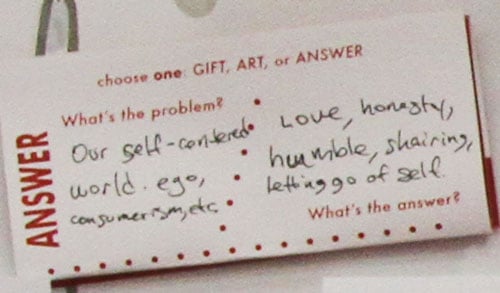 choose one: GIFT, ART, or ANSWER
ANSWER
What's the problem?
Our self-centered
world. ego,
consumerism, etc.
Love, honesty,
humble, shairing,
letting go of self.
What's the answer?